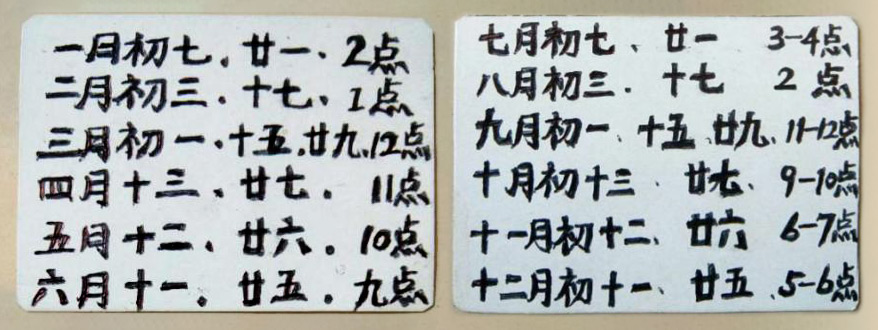 一月初七、廿一、2点
二月初三、十七、1点
三月初一、十五、廿九、12点
四月十三、廿七、11点
五月十二、廿六。10点
六月十一。廿五。九点
七月初七、廿一 3-4点
八月初三、十七 2点
九月初一、十五、廿九、11-12点
十月初十三、廿七、9-10点
十一月初十二、廿六 6-7点
十二月初十一、廿五、5-6点